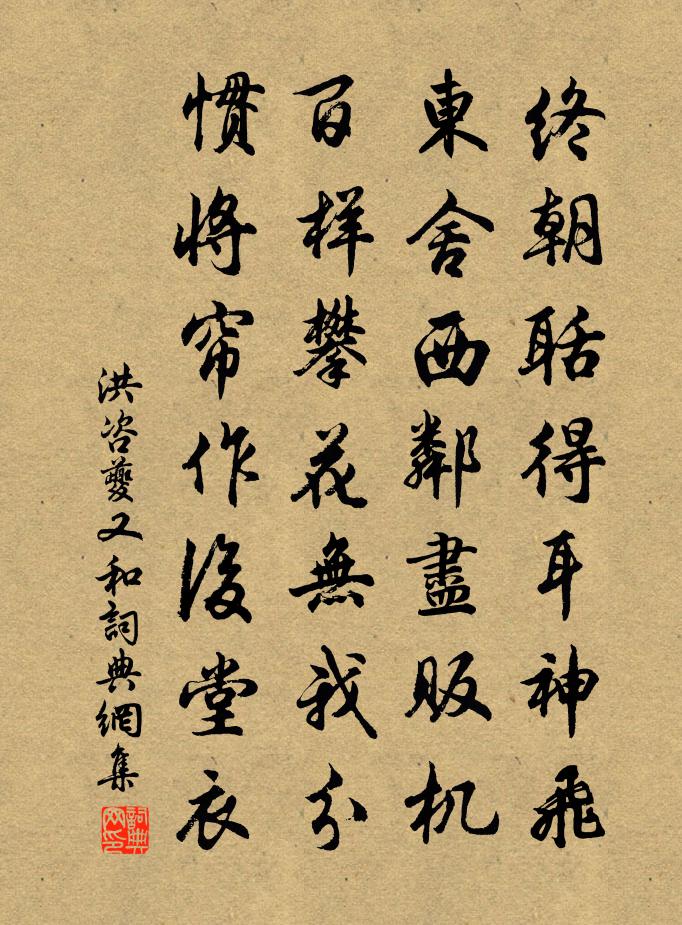 終朝聒得耳神飛
東舍西鄰盡販机
百樣攀花無我分
慣將帘作後堂衣
洪咨夔又和詞典網集
詞典網印